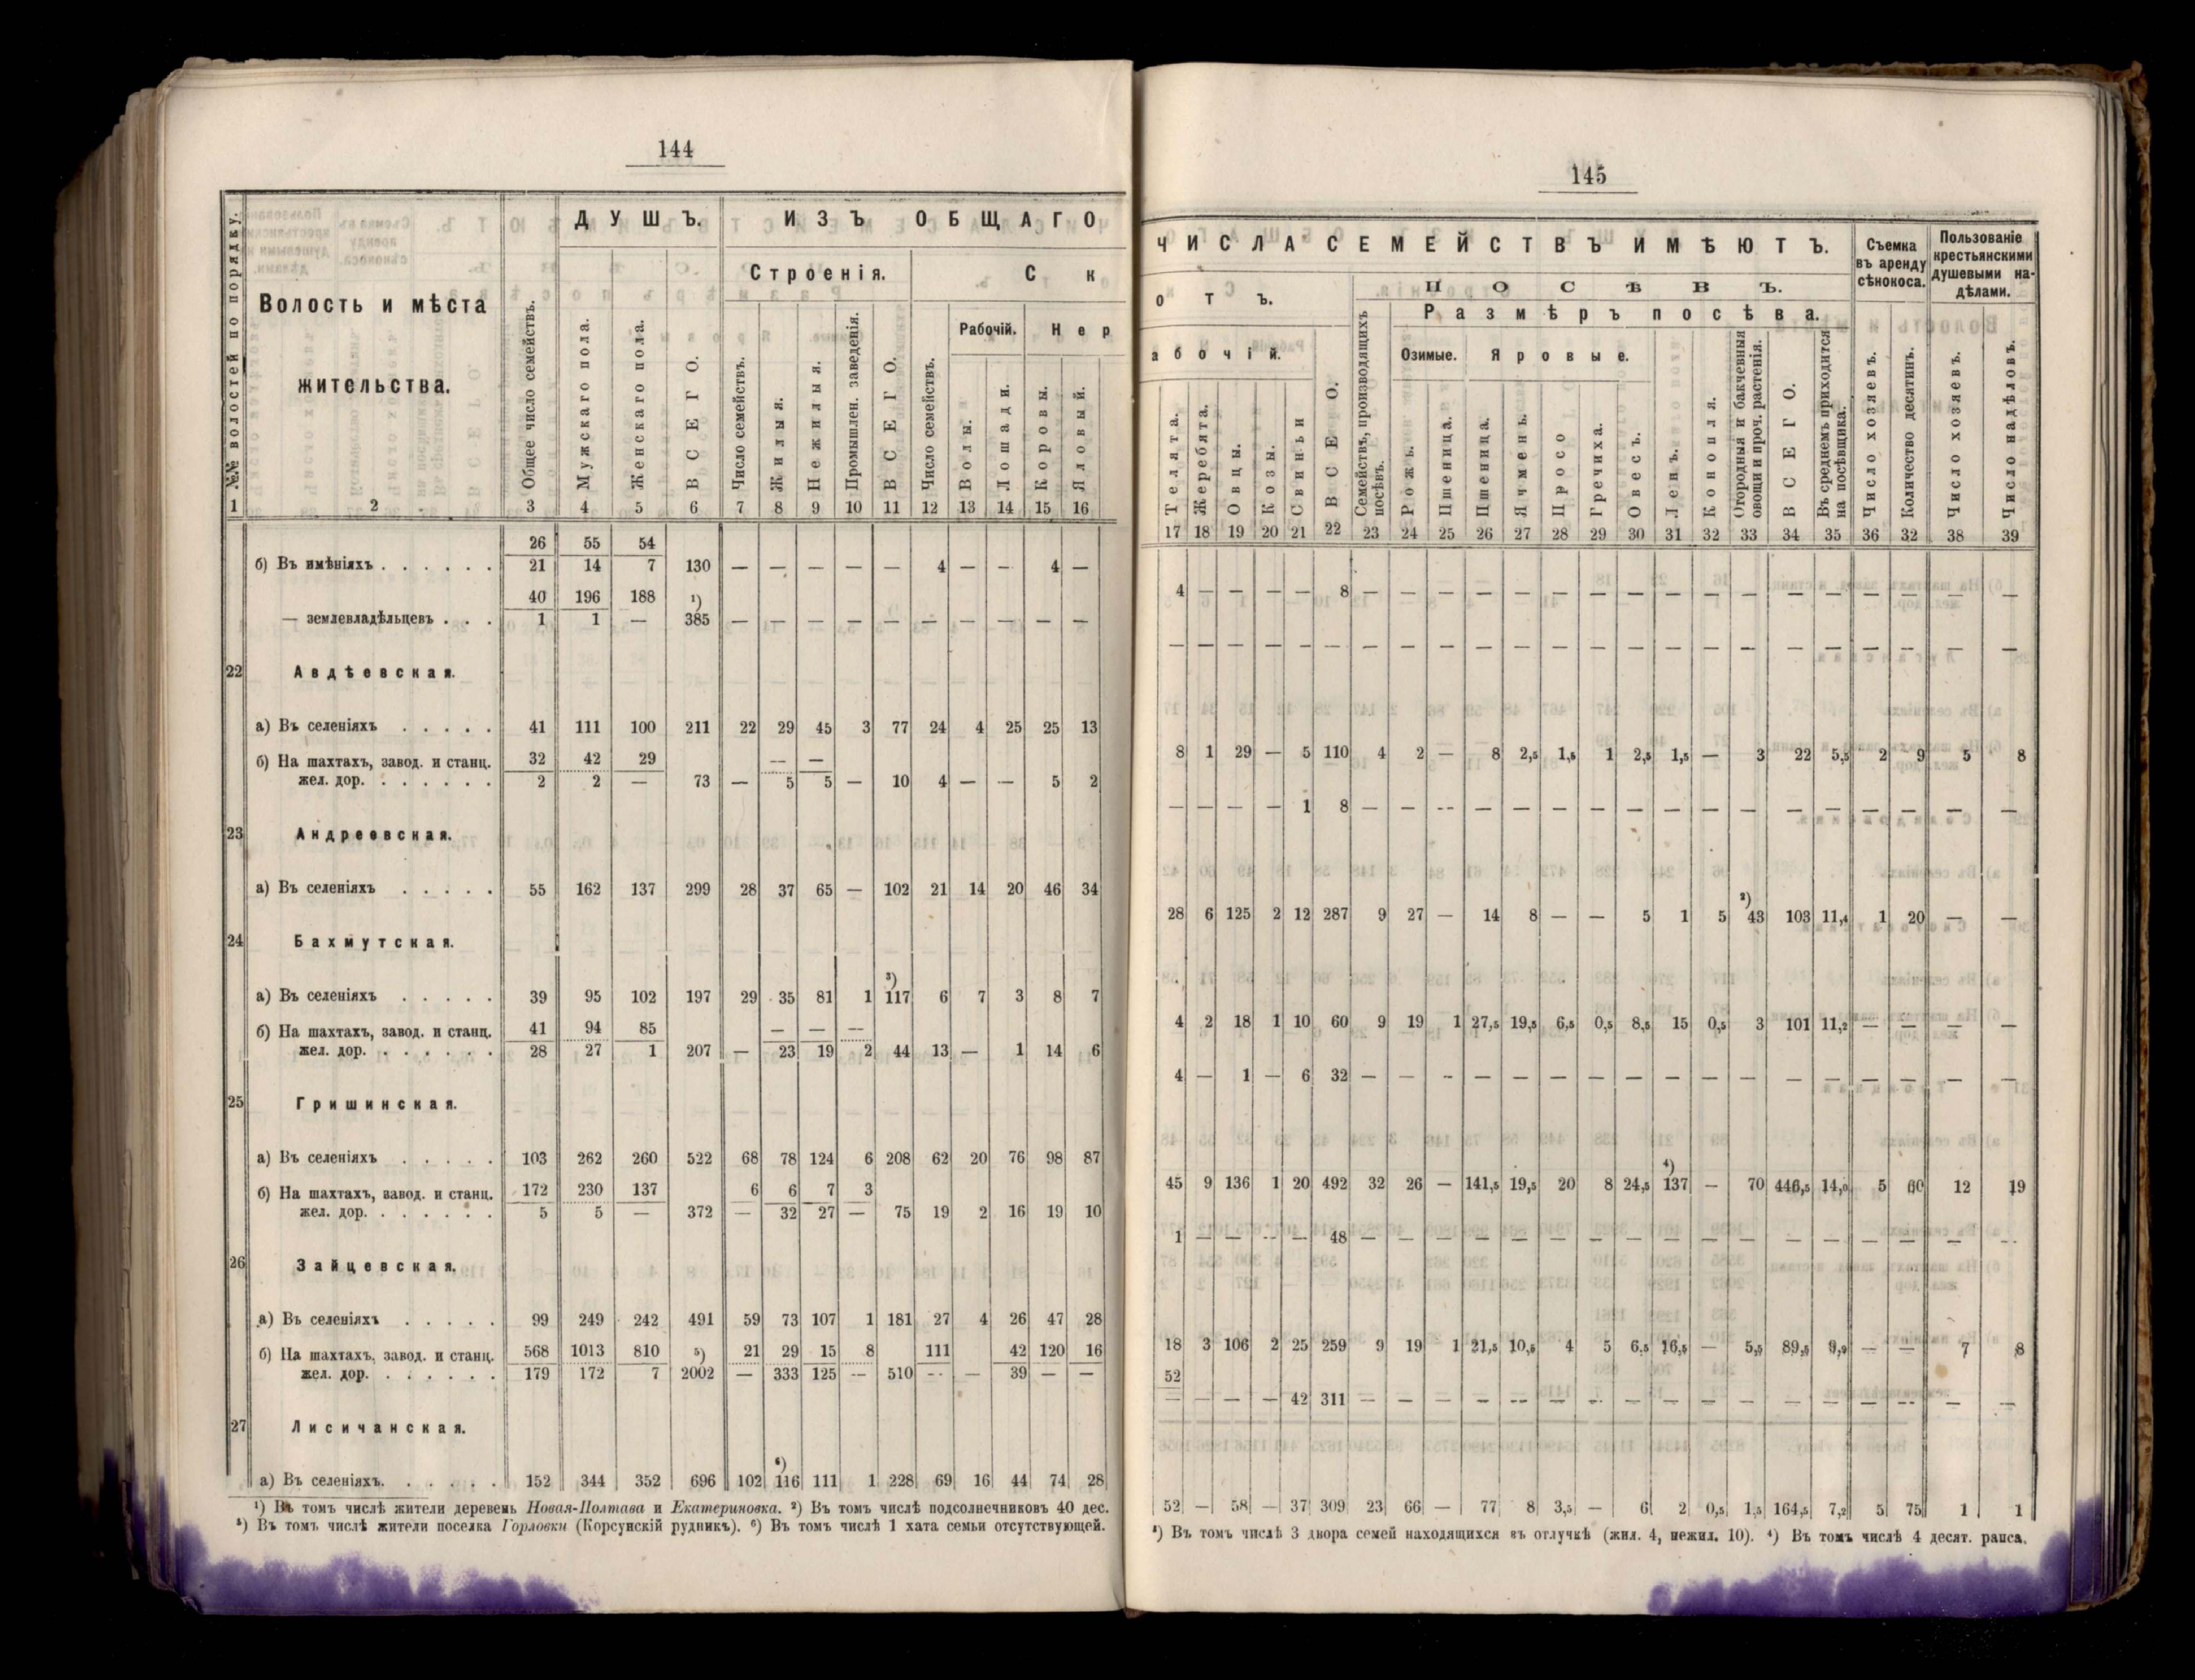 144
№№ волостей по порядку.
Волость и мѣста
жительства.
Общее число семействъ.
ДУШЪ.
Мужскаго пола.
Женскаго пола.
ВСЕГО.
ИЗЪ ОБЩАГО
Строенія.
Число семействъ.
Жилыя.
Нежилыя.
Промышлен. заведенія.
ВСЕГО.
Ск
Число семействъ.
Рабочій.
Волы.
Лошади.
Нер
Коровы.
Яловый.
1 2 3 4 5 6 7 8 9 10 11 12 13 14 15 16
26 55 54
б) Въ имѣніяхъ . . . . . . 21 14 7 130 — — — — — 4 — — 4 —
40 196 188 ¹)
— землевладѣльцевъ . . . 1 1 — 385 — — — — — — — — — —
22 Авдѣевская.
а) Въ селеніяхъ . . . . . 41 111 100 211 22 29 45 3 77 24 4 25 25 13
б) На шахтахъ, завод. и станц. 32 42 29 — —
жел. дор. . . . . . . 2 2 — 73 — 5 5 — 10 4 — — 5 2
23 Андреевская.
а) Въ селеніяхъ . . . . . 55 162 137 299 28 37 65 — 102 21 14 20 46 34
24 Бахмутская.
а) Въ селеніяхъ . . . . . 39 95 102 197 29 35 81 1 ³) 117 6 7 3 8 7
б) На шахтахъ, завод. и станц. 41 94 85 — — —
жел. дор. . . . . . . 28 27 1 207 — 23 19 2 44 13 — 1 14 6
25 Гришинская.
а) Въ селеніяхъ . . . . . 103 262 260 522 68 78 124 6 208 62 20 76 98 87
б) На шахтахъ, завод. и станц. 172 230 137 6 6 7 3
жел. дор. . . . . . . 5 5 — 372 — 32 27 — 75 19 2 16 19 10
26 Зайцевская.
а) Въ селеніяхъ . . . . . 99 249 242 491 59 73 107 1 181 27 4 26 47 28
б) На шахтахъ, завод. и станц. 568 1013 810 ⁵) 21 29 15 8 111 42 120 16
жел. дор. . . . . . . 179 172 7 2002 — 333 125 — 510 — — 39 — —
27 Лисичанская.
а) Въ селеніяхъ. . . . . . 152 344 352 696 102 ⁶) 116 111 1 228 69 16 44 74 28
¹) Въ томъ числѣ жители деревень Новая-Полтава и Екатериновка. ²) Въ томъ числѣ подсолнечниковъ 40 дес.
⁵) Въ томъ числѣ жители поселка Горловки (Корсунскій рудникъ). ⁶) Въ томъ числѣ 1 хата семьи отсутствующей.
145
ЧИСЛА СЕМЕЙСТВЪ ИМѢЮТЪ.
отъ.
абочій.
Телята.
Жеребята.
Овцы.
Козы.
Свиньи
ВСЕГО.
ПОСѢВЪ.
Семействъ, производящихъ
посѣвъ.
Размѣръ посѣва.
Озимые.
Рожь.
Пшеница.
Яровые.
Пшеница.
Ячмень.
Просо
Гречиха.
Овесъ.
Ленъ.
Конопля.
Огородныя и бакчевныя
овощи и проч. растенія.
ВСЕГО.
Въ среднемъ приходится
на посѣвщика.
Съемка
въ аренду
сѣнокоса.
Число хозяевъ.
Количество десятинъ.
Пользованіе
крестьянскими
душевыми на-
дѣлами.
Число хозяевъ.
Число надѣловъ.
17 18 19 20 21 22 23 24 25 26 27 28 29 30 31 32 33 34 35 36 32 38 39
4 — — — — 8 — — — — — — — — — — — — — — — — —
— — — — — — — — — — — — — — — — — — — — — — —
8 1 29 — 5 110 4 2 — 8 2,5 1,5 1 2,5 1,5 — 3 22 5,5 2 9 5 8
— — — — 1 8 — — — — — — — — — — — — — — — — —
28 6 125 2 12 287 9 27 — 14 8 — — 5 1 5 ²) 43 103 11,4 1 20 — —
4 2 18 1 10 60 9 19 1 27,5 19,5 6,5 0,5 8,5 15 0,5 3 101 11,2 — — — —
4 — 1 — 6 32 — — — — — — — — — — — — — — — — —
45 9 136 1 20 492 32 26 — 141,5 19,5 20 8 24,5 ⁴) 137 — 70 446,5 14,0 5 60 12 19
1 — — — — 48 — — — — — — — — — — — — — — — — —
18 3 106 2 25 259 9 19 1 21,5 10,5 4 5 6,5 16,5 — 5,5 89,5 9,9 — — 7 8
52
— — — — 42 311 — — — — — — — — — — — — — — — — —
52 — 58 — 37 309 23 66 — 77 8 3,5 — 6 2 0,5 1,5 164,5 7,2 5 75 1 1
³) Въ томъ числѣ 3 двора семей находящихся въ отлучкѣ (жил. 4, нежил. 10). ⁴) Въ томъ числѣ 4 десят. рапса.